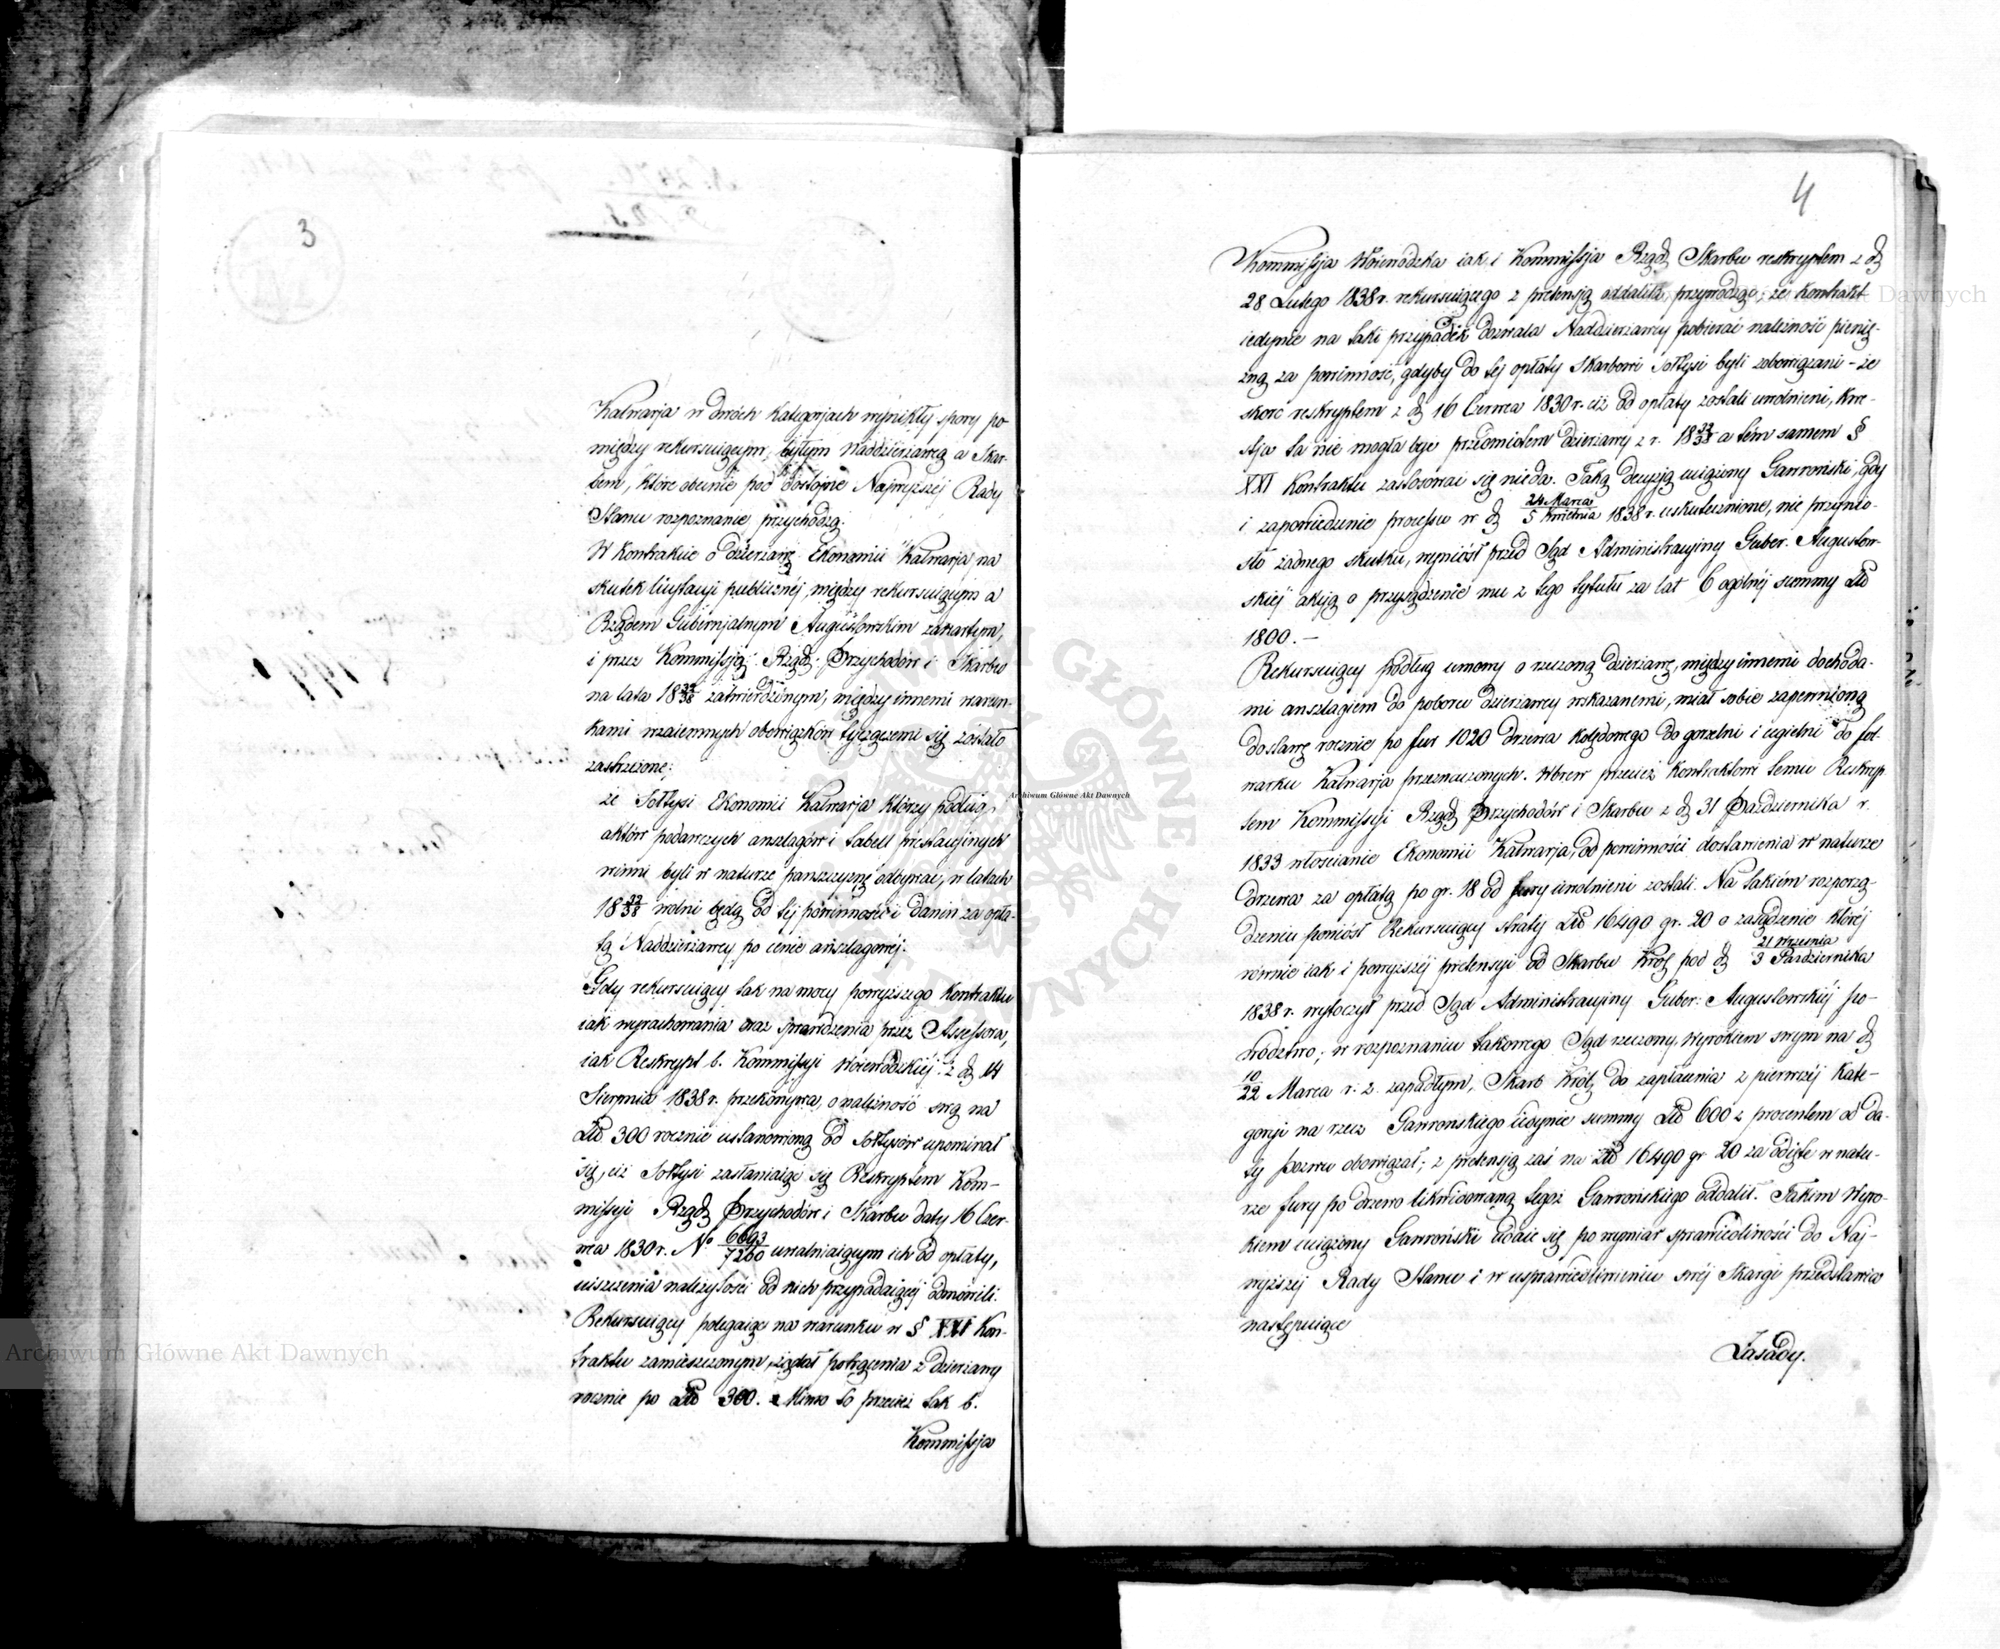 3
Kalwarja w dwóch kategorjach wynikły spory po
między rekurruiącym, byłym Naddzierzawcą a Skar-
bem, które obecnie pod dostojne Najwyższéj Rady
Stanu rozpoznanie przychodzą.
W Kontrakcie o dzierżawę Ekonomii Kalwarja na
skutek licytacyi publicznéj, między rekurruiącym a
Rządem Gubernjalnym Augustowskim zawartym,
i przez Kommissją Rządz. Przychodów i Skarbu
na lata 18 32/38 zatwierdzonym, między innemi warun-
kami wzaiemnych obowiązków tyczącemi się zostało
zastrzeżone;
że Sołtysi Ekonomii Kalwarja którzy podług
aktów podawczych anszlagów i tabell prestacyjnych
winni byli w naturze pańszczyznę odbywać, w latach
18 32/38 wolni będą od téj powinności i danin za opła-
tą Naddzierżawcy po cenie anszlagowéj.
Gdy rekurruiący tak na mocy powyższego Kontraktu
iak wyrachowania oraz sprawdzenia przez Assessora,
iak Reskrypt b. Kommissyi Woiewódzkiéj z d. 14
Sierpnia 1838 r. przekonywa, o należność swą na
Złp 300 rocznie ustanowioną od Sołtysów upominał
się, ciż Sołtysi zasłaniaiąc się Reskryptem Kom-
missyi Rządz. Przychodów i Skarbu daty 16 Czer-
wca 1830 r. No 6693/7260 uwalniaiącym ich od opłaty,
uiszczenia należytości od nich przypadaiącéj odmówili.
Rekurruiący polegaiąc na warunku w § XXI Kon-
traktu zamieszczonym, żądał potrącenia z dzierżawy
rocznie po Złp 300. Mimo to przecież tak b.
Kommissja
4
Kommissja Woiewódzka iak i Kommissja Rządz. Skarbu reskryptem z d.
28 Lutego 1838 r. rekurruiącego z pretensją oddaliła, przywodząc, że Kontrakt
iedynie na taki przypadek dozwala Naddzierżawcy pobierać należność pienię-
żną za powinność, gdyby do téj opłaty Skarbowi Sołtysi byli zobowiązani - że
skoro reskryptem z d. 16 Czerwca 1830 r. ciż od opłaty zostali uwolnieni, kwe-
stja ta nie mogła być przedmiotem dzierżawy z r. 18 32/38 a tém samem §
XXI Kontraktu zastosować się nieda. Taką decyzją uciążony Gawroński, gdy
i zapowiedzenie processu w d. 24 Marca/5 Kwietnia 1838 r. uskutecznione, nie przynio-
sło żadnego skutku, wyniósł przed Sąd Administracyiny Guber. Augustow-
skiéj akcją o przysądzenie mu z tego tytułu za lat 6 ogólnéj summy Złp
1800. —
Rekurruiący podług umowy o rzeczoną dzierżawę, między innemi dochoda-
mi anszlagiem do poboru dzierżawcy wskazanemi, miał sobie zapewnioną
dostawę rocznie po fur 1020 drzewa kolędowego do gorzelni i cegielni do fol-
warku Kalwarja przeznaczonych. Wbrew przecież Kontraktowi temu Reskryp-
tem Kommissyi Rządz. Przychodów i Skarbu z d. 31 Października r.
1833 włościanie Ekonomii Kalwarja, od powinności dostawienia w naturze
drzewa za opłatą po gr. 18 od fury uwolnieni zostali. Na takiém rozporzą-
dzeniu poniósł Rekurruiący straty Złp 16490 gr. 20 o zasądzenie któréj
równie iak i powyższéj pretensyi od Skarbu Król. pod d. 21 Września/3 Października
1838 r. wytoczył przed Sąd Administracyiny Guber: Augustowskiéj po-
wództwo; w rozpoznaniu takowego Sąd rzeczony, Wyrokiem swym na d.
10/22 Marca r. z. zapadłym, Skarb Król. do zapłacenia z pierwszéj kate-
goryi na rzecz Gawrońskiego iedynie summy Złp 600 z procentem od da-
ty pozwu obowiązał; z pretensją zaś na Złp 16490 gr 20 za odięte w natu-
rze fury po drzewo likwidowaną tegoż Gawrońskiego oddalił. Takim Wyro-
kiem uciążony Gawroński udaie się po wymiar sprawiedliwości do Naj-
wyższéj Rady Stanu i w usprawiedliwieniu swéj Skargi przedstawia
następuiące
Zasady.
Archiwum Główne Akt Dawnych